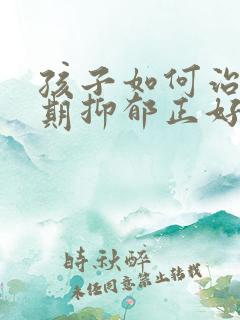 孩子如何治
期抑郁正好
时秋醉
未经同意禁止转载